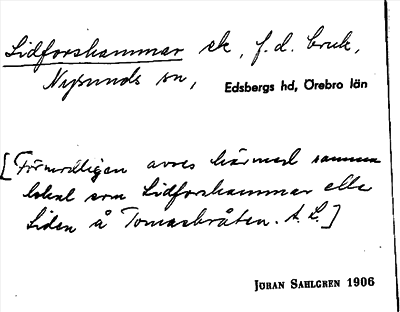 Lidforshammar ek, f.d. bruk,
Nysunds sn, Edsbergs hd, Örebro län
[Förmodligen avses härmed samma
lokal som Lidforshammar elle
Liden å Tomasbråten. A. L.]
JÖRAN SAHLGREN 1906